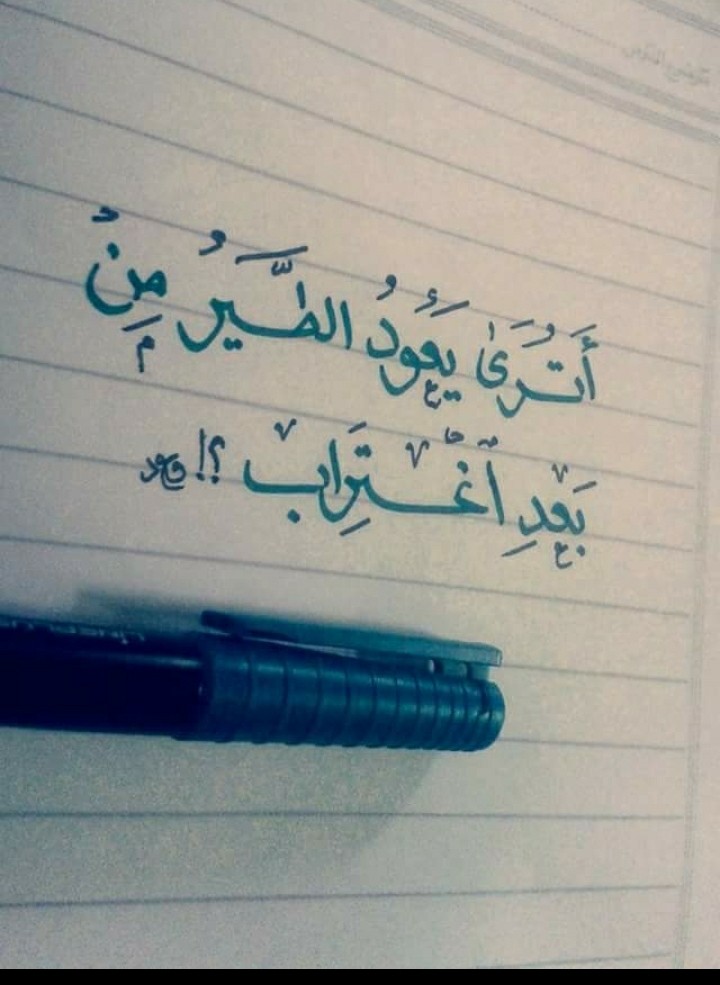 أَتُرَىٰ يَعُودُ الطَّيْرُ مِنْ
بَعْدِ اغْتِرَاب ؟!